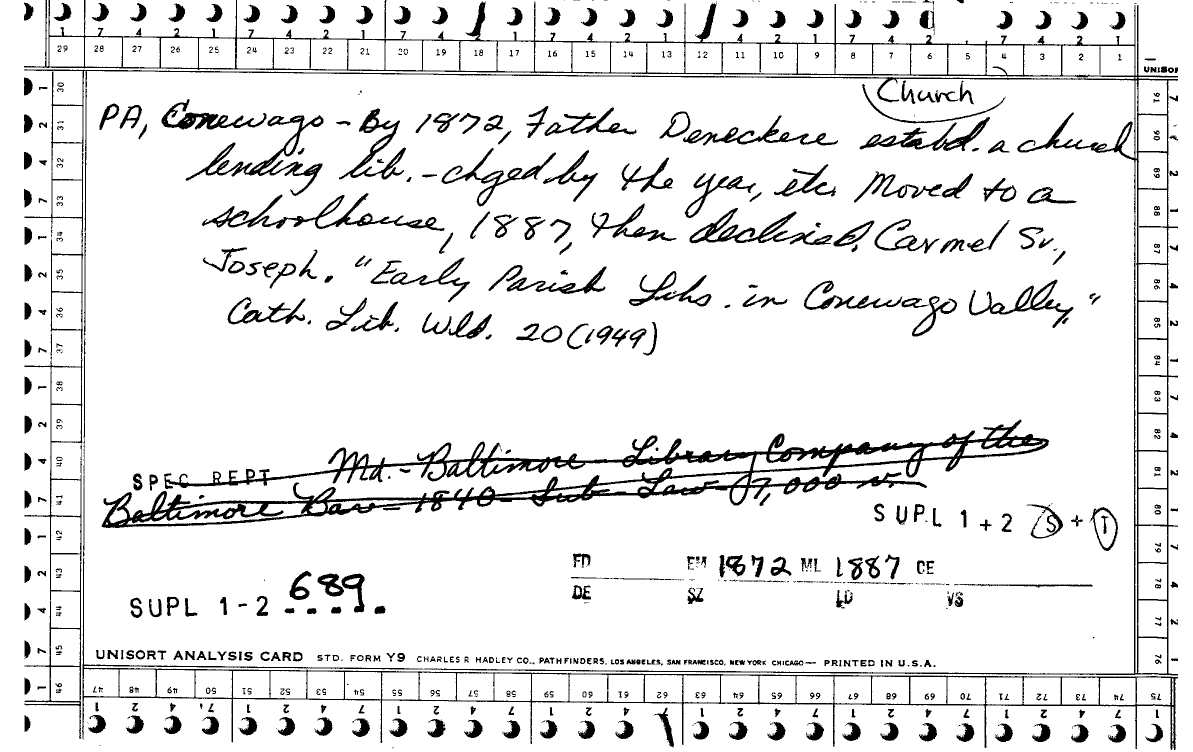 7 4 2 1 7 4 2 1 7 4 2 1 7 4 2 1 7 4 2 1 7 4 2 1 7 4 2 1
29 28 27 26 25 24 23 22 21 20 19 18 17 16 15 14 13 12 11 10 9 8 7 6 5 4 3 2 1
UNISOR
Church
PA, Conewago - By 1872, Father Deneckere estabd. a church
lending lib. - chged by the year, etc. Moved to a
schoolhouse, 1887, then declined. Carmel Sr.,
Joseph. "Early Parish Libs. in Conewago Valley,"
Cath. Lib. Wld. 20 (1949)
SPEC REPT Md. - Baltimore - Library Company of the
Baltimore Bar - 1840 - Sub - Law - 7,000 v.
SUPL 1 + 2 S + T
FD EM 1872 ML 1887 CE
DE SZ LD VS
SUPL 1-2 689
UNISORT ANALYSIS CARD STD. FORM Y9 CHARLES R HADLEY CO., PATHFINDERS, LOS ANGELES, SAN FRANCISCO, NEW YORK CHICAGO — PRINTED IN U.S.A.
47 48 49 50 51 52 53 54 55 56 57 58 59 60 61 62 63 64 65 66 67 68 69 70 71 72 73 74 75